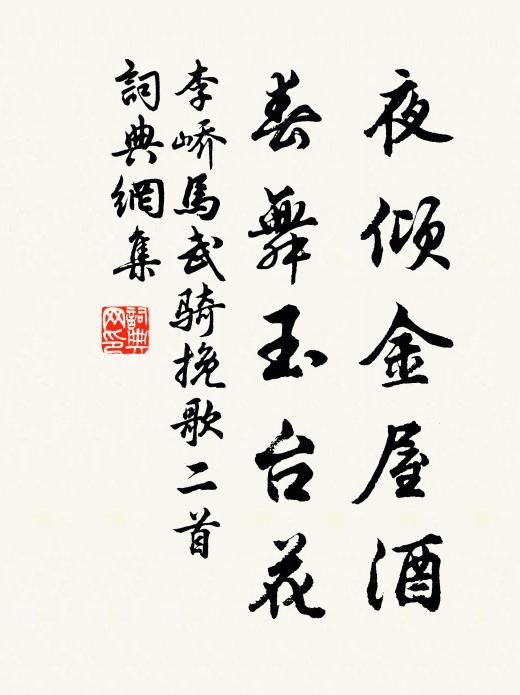 夜倾金屋酒
春舞玉台花
李峤馬武骑挽歌二首
詞典網集
詞典网印